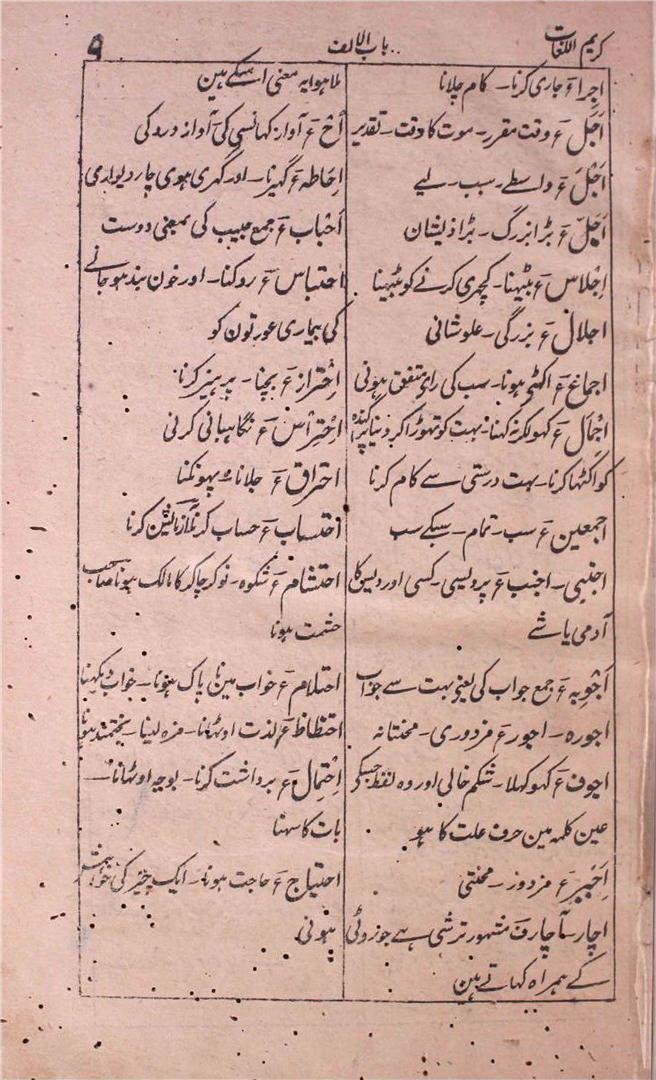 کریم اللغات
باب الالف
۹
اِجراء ع جاری کرنا۔ کام چلانا
اَجَل ع وقت مقرر۔ موت کا وقت۔ تقدیر
اَجْل ع واسطے۔ سبب۔ لیے
اَجَلّ ع بڑا بزرگ۔ بڑا ذیشان
اِجْلاس ع بیٹھنا۔ کچہری کرنے کو بیٹھنا
اجلال ع بزرگی۔ علو شانی
اجماع ع اکٹھی ہونا۔ سب کی رای متفق ہونی
اِجْمال ع کھولکر نہ کہنا۔ بہت کو تھوڑا کر دینا پراگندہ
کو اکٹھا کرنا۔ بہت درستی سے کام کرنا
اجمعین ع سب۔ تمام۔ سبکے سب
اجنبی۔ اجنب ع پردیسی۔ کسی اور دیس کا
آدمی یا شے
اَجْوِبہ ع جمع جواب کی یعنی بہت سے جواب
اجورہ۔ اجور ع مزدوری۔ محنتانہ
اجوف ع کھوکھلا۔ شکم خالی اور وہ لفظ جسکے
عین کلمہ مین حرف علت کا ہو
اَجِیر ع مزدور۔ محنتی
اچار۔ آچار ف مشہور ترشی ہے جو روٹی
کے ہمراہ کہاتے ہین
ملا ہوا یہ معنی اسکے ہین
اَخ ع آواز کہانسی کی آواز درد کی
اِحاطہ ع گھیرنا۔ اور گھری ہوی چار دیواری
اَحْباب ع جمع حبیب کی بمعنی دوست
احتباس ع روکنا۔ اور خون بند ہو جانے
کی بیماری عورتون کو
اِحْتراز ع بچنا۔ پرہیز کرنا
اِحْتِراس ع نگاہبانی کرنی
احتراق ع جلانا۔ پھونکنا
احتساب ع حساب کرنا
احتشام ع شکوہ۔ نوکر چاکر کا مالک ہونا صاحب
حشمت ہونا
احتلام ع خواب مین نا پاک ہونا۔ خواب دیکھنا
احتظاظ ع لذت اوٹھانا۔ مزہ لینا۔ بختمند ہونا
اِحْتِمال ع برداشت کرنا۔ بوجھ اوٹھانا
بات کا سہنا
احتیاج ع حاجت ہونا۔ ایک چیز کی خواہش
ہونی